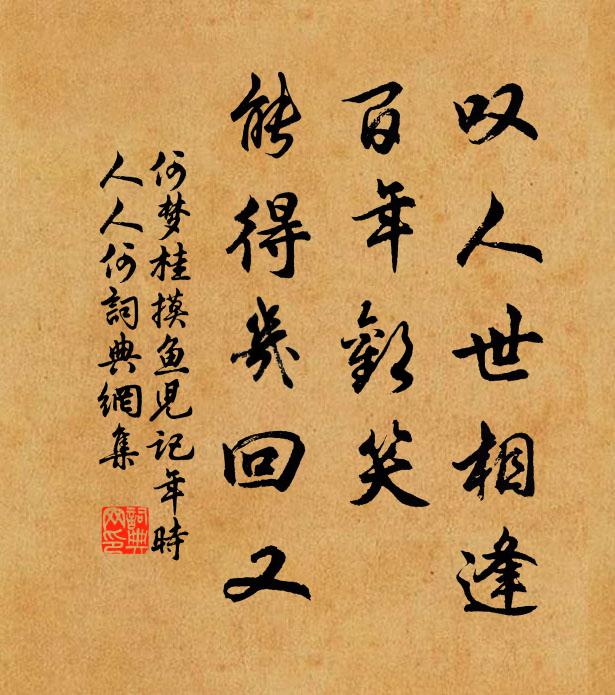 叹人世相逢
百年歡笑
能得幾回又
何梦桂摸鱼児记年時
人人何詞典網集
詞典
网印